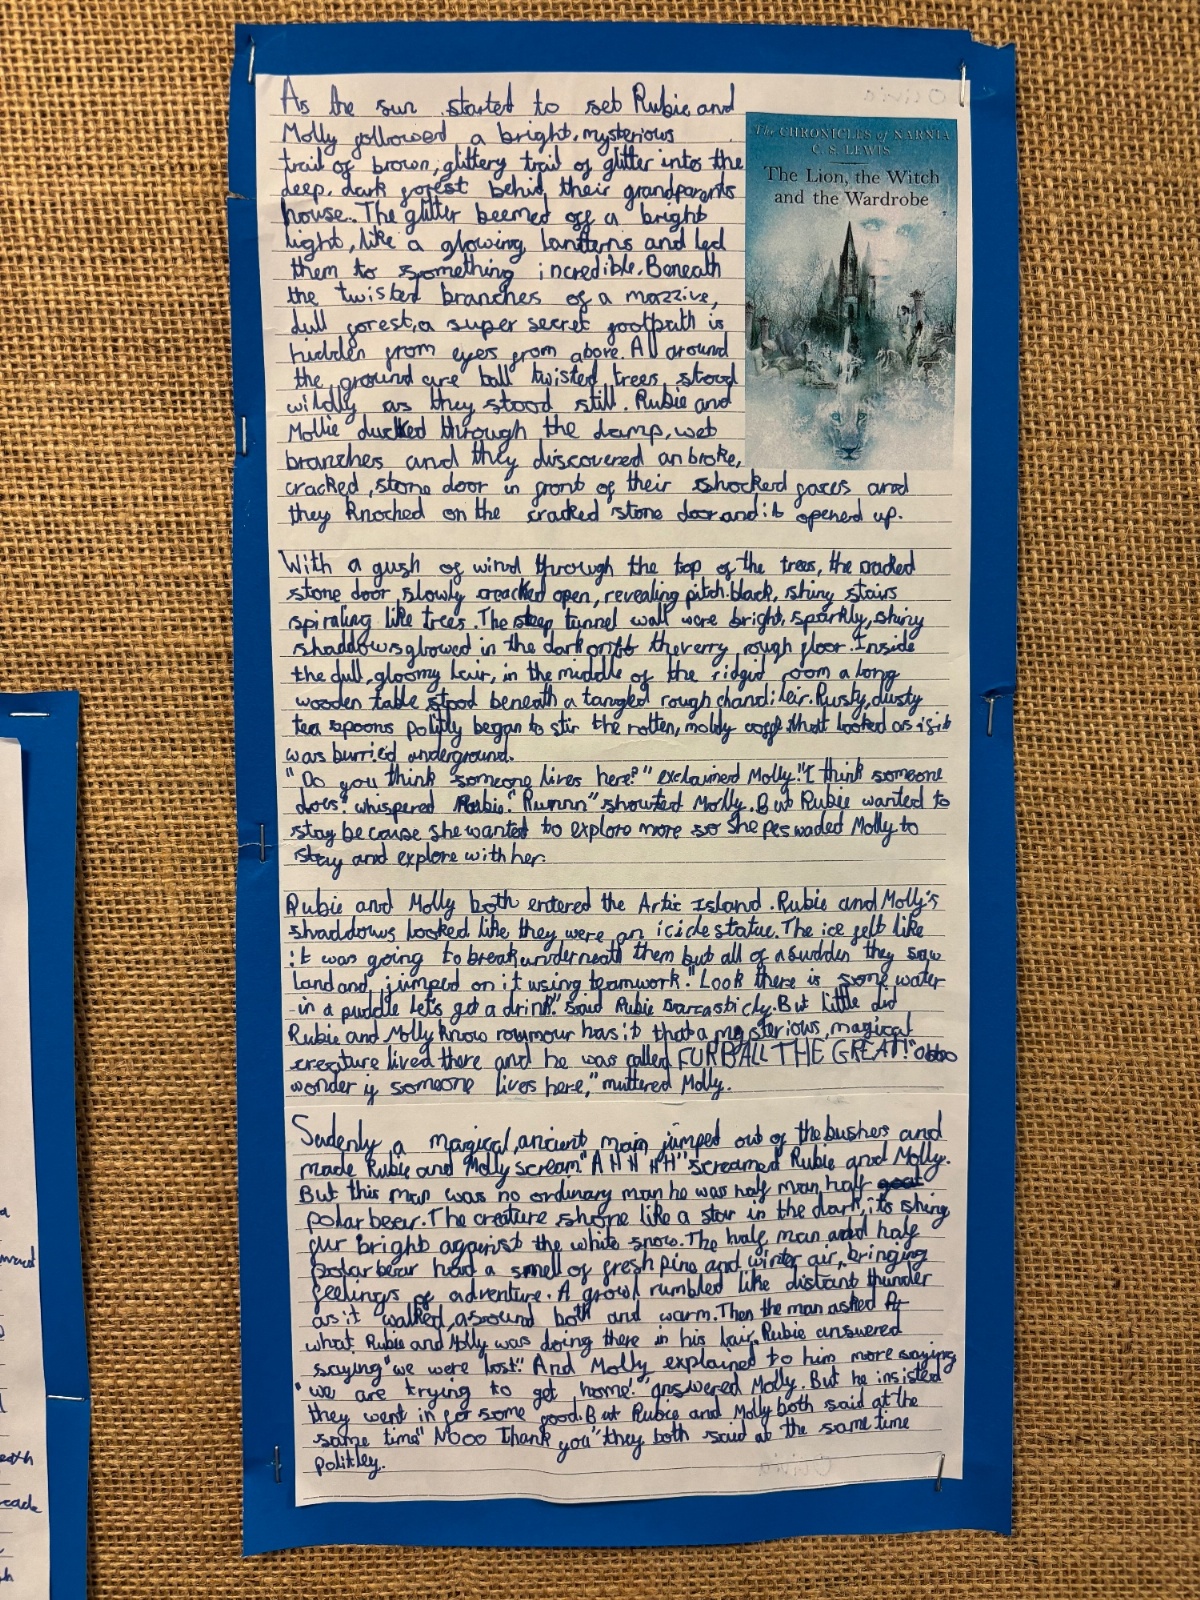 As the sun started to set Rubie and
Molly followed a bright, mysterious
trail of brown, glittery trail of glitter into the
deep, dark forest behid, their grandparents
house. The glitter beemed off a bright
light, like a glowing lantterns and led
them to something incredible. Beneath
the twisted branches of a mazzive,
dull forest, a super secret footpath is
hidden from eyes from above. All around
the ground are tall twisted trees stood
wildly as they stood still. Rubie and
Mollie ducked through the damp, wet
branches and they discovered an broke,
cracked, stone door in front of their shocked faces and
they knoched on the cracked stone door and it opened up.
The CHRONICLES of NARNIA
C. S. LEWIS
The Lion, the Witch
and the Wardrobe
With a gush of wind through the top of the trees, the cracked
stone door, slowly creacked open, revealing pitch black, shiny stairs
spiraling like trees. The steep tunnel wall were bright, sparkly, shiny
shaddows glowed in the dark the verry rough floor. Inside
the dull, gloomy lair, in the middle of the ridgid room a long
wooden table stood beneath a tangled rough chandilair. Rusty, dusty
tea spoons politly began to stir the rotten, moldy that looked as if it
was burried underground.
"Do you think someone lives here?" exclaimed Molly. "I think someone
does" whispered Rubie. "Runnn" showted Molly. But Rubie wanted to
stay because she wanted to explore more so she peswaded Molly to
stay and explore with her.
Rubie and Molly both entered the Artic Island. Rubie and Molly's
shaddows looked like they were an icicle statue. The ice felt like
it was going to break underneath them but all of a sudden they saw
land and jumped on it using teamwork. "Look there is some water
in a puddle let's get a drink" said Rubie sarcasticly. But little did
Rubie and Molly know roumour has it that a mysterious, magical
creature lived there and he was called FURBALL THE GREAT! "
wonder if someone lives here," muttered Molly.
Sudenly a magical, ancient man jumped out of the bushes and
made Rubie and Molly scream "AHHHH" screamed Rubie and Molly.
But this man was no ordinary man he was half man, half
polar bear. The creature shone like a star in the dark, it's shing
fur bright against the white snow. The half man and half
polar bear had a smell of fresh pine and winter air, bringing
feelings of adventure. A growl rumbled like distant thunder
as it walked, a sound both and warm. Then the man asked
what Rubie and Molly was doing there in his lair. Rubie answered
saying "we were lost". And Molly explained to him more saying
"we are trying to get home" answered Molly. But he insisted
they went in for some food. But Rubie and Molly both said at the
same time" Nooo Thank you" they both said at the same time
politley.